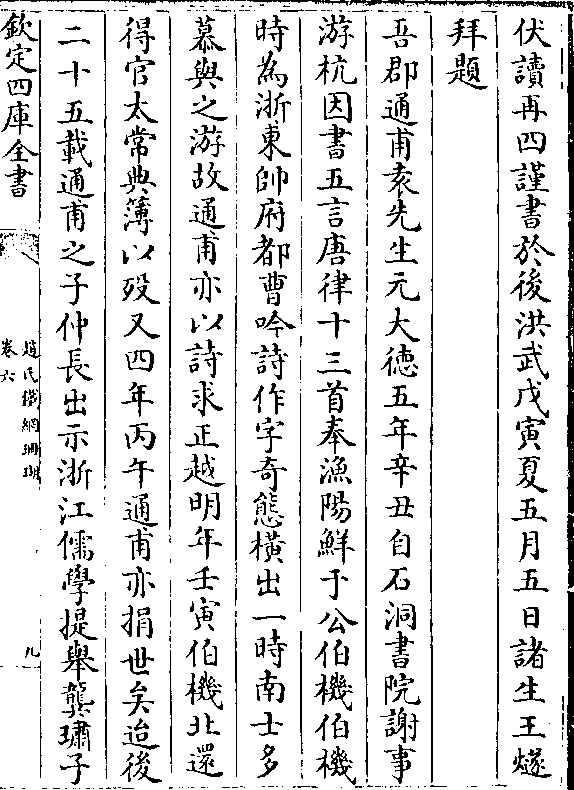 伏讀再四謹書於後洪武戊寅夏五月五日諸生王燧
拜題
吾郡通甫袁先生元大德五年辛丑自石洞書院謝事
游杭因書五言唐律十三首奉漁陽鮮于公伯機伯機
時為浙東帥府都曹吟詩作字奇態橫出一時南士多
慕與之游故通甫亦以詩求正越明年壬寅伯機北還
得官太常典簿以歿又四年丙午通甫亦捐世矣迨後
二十五載通甫之子仲長出示浙江儒學提舉龔璛子
欽定四庫全書
趙氏鐵網珊瑚
卷六
九